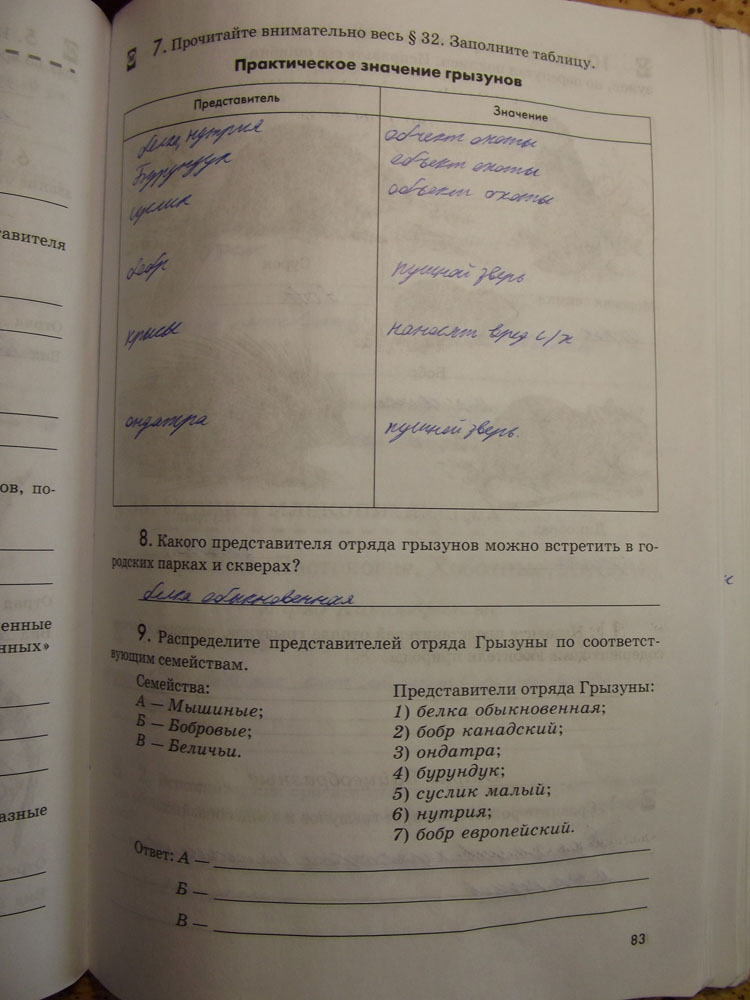 7. Прочитайте внимательно весь § 32. Заполните таблицу.
Практическое значение грызунов
Представитель Значение
белка, нутрия объект охоты
Бурундук объект охоты
суслик объект охоты
бобр пушной зверь
крысы наносят вред с/х
ондатра пушной зверь.
8. Какого представителя отряда грызунов можно встретить в го-
родских парках и скверах?
белка обыкновенная
9. Распределите представителей отряда Грызуны по соответст-
вующим семействам.
Семейства:
А — Мышиные;
Б — Бобровые;
В — Беличьи.
Представители отряда Грызуны:
1) белка обыкновенная;
2) бобр канадский;
3) ондатра;
4) бурундук;
5) суслик малый;
6) нутрия;
7) бобр европейский.
Ответ: А —
Б —
В —
83
тавителя
ов, по-
енные
нных»
азные